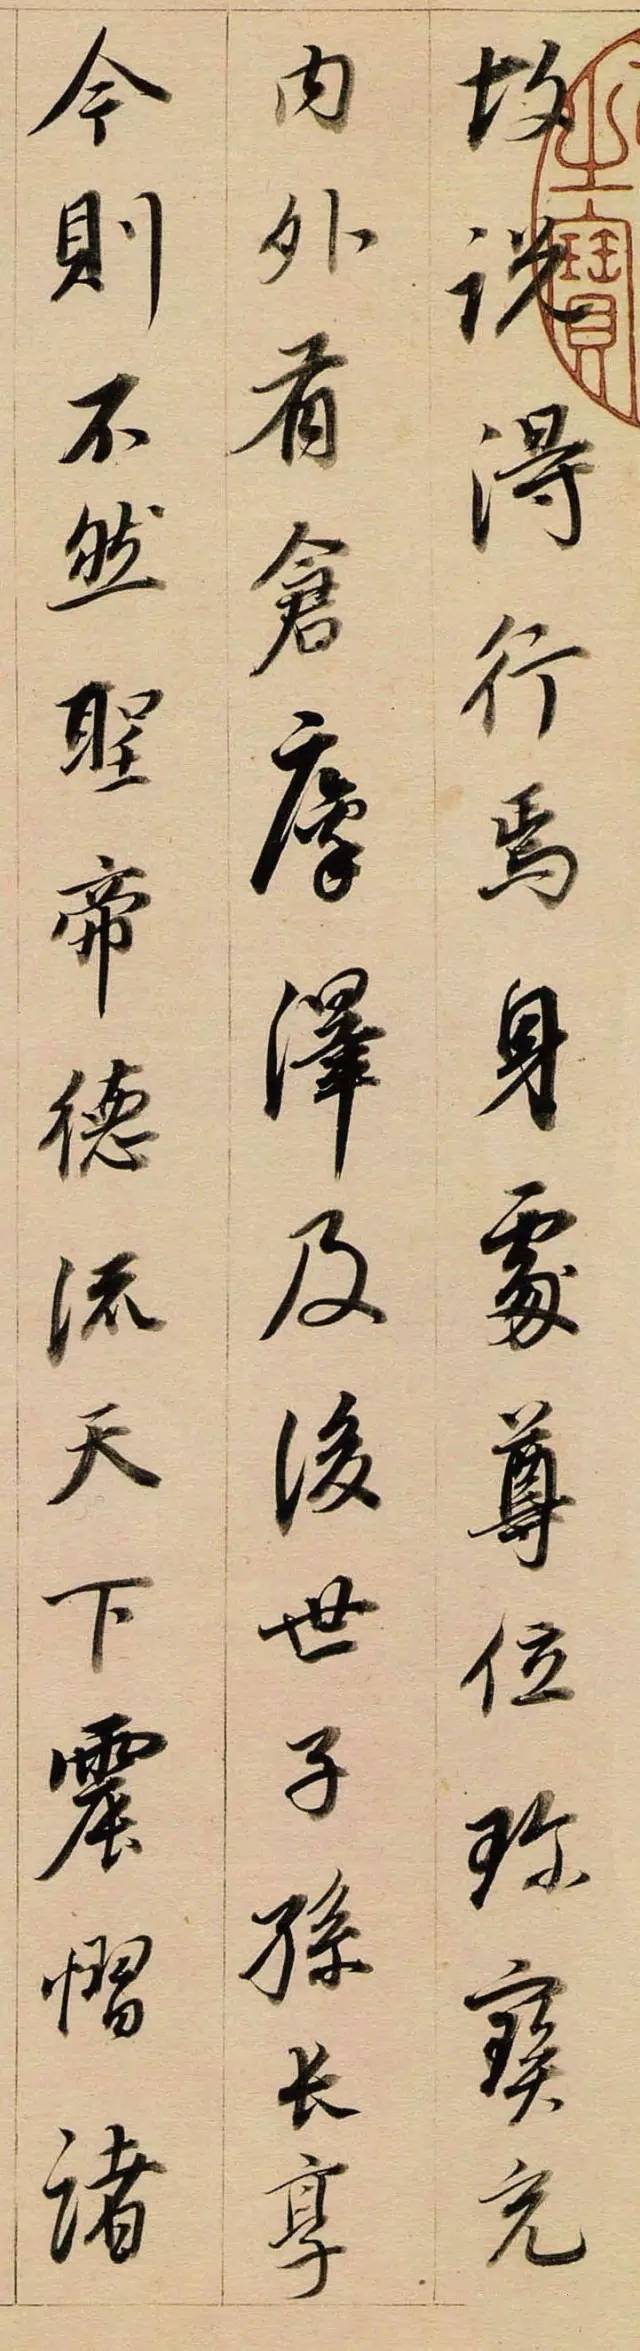 故說得行焉身處尊位珎寳充
内外有倉廩澤及後世子孫長享
今則不然聖帝德流天下震慴諸
之寶